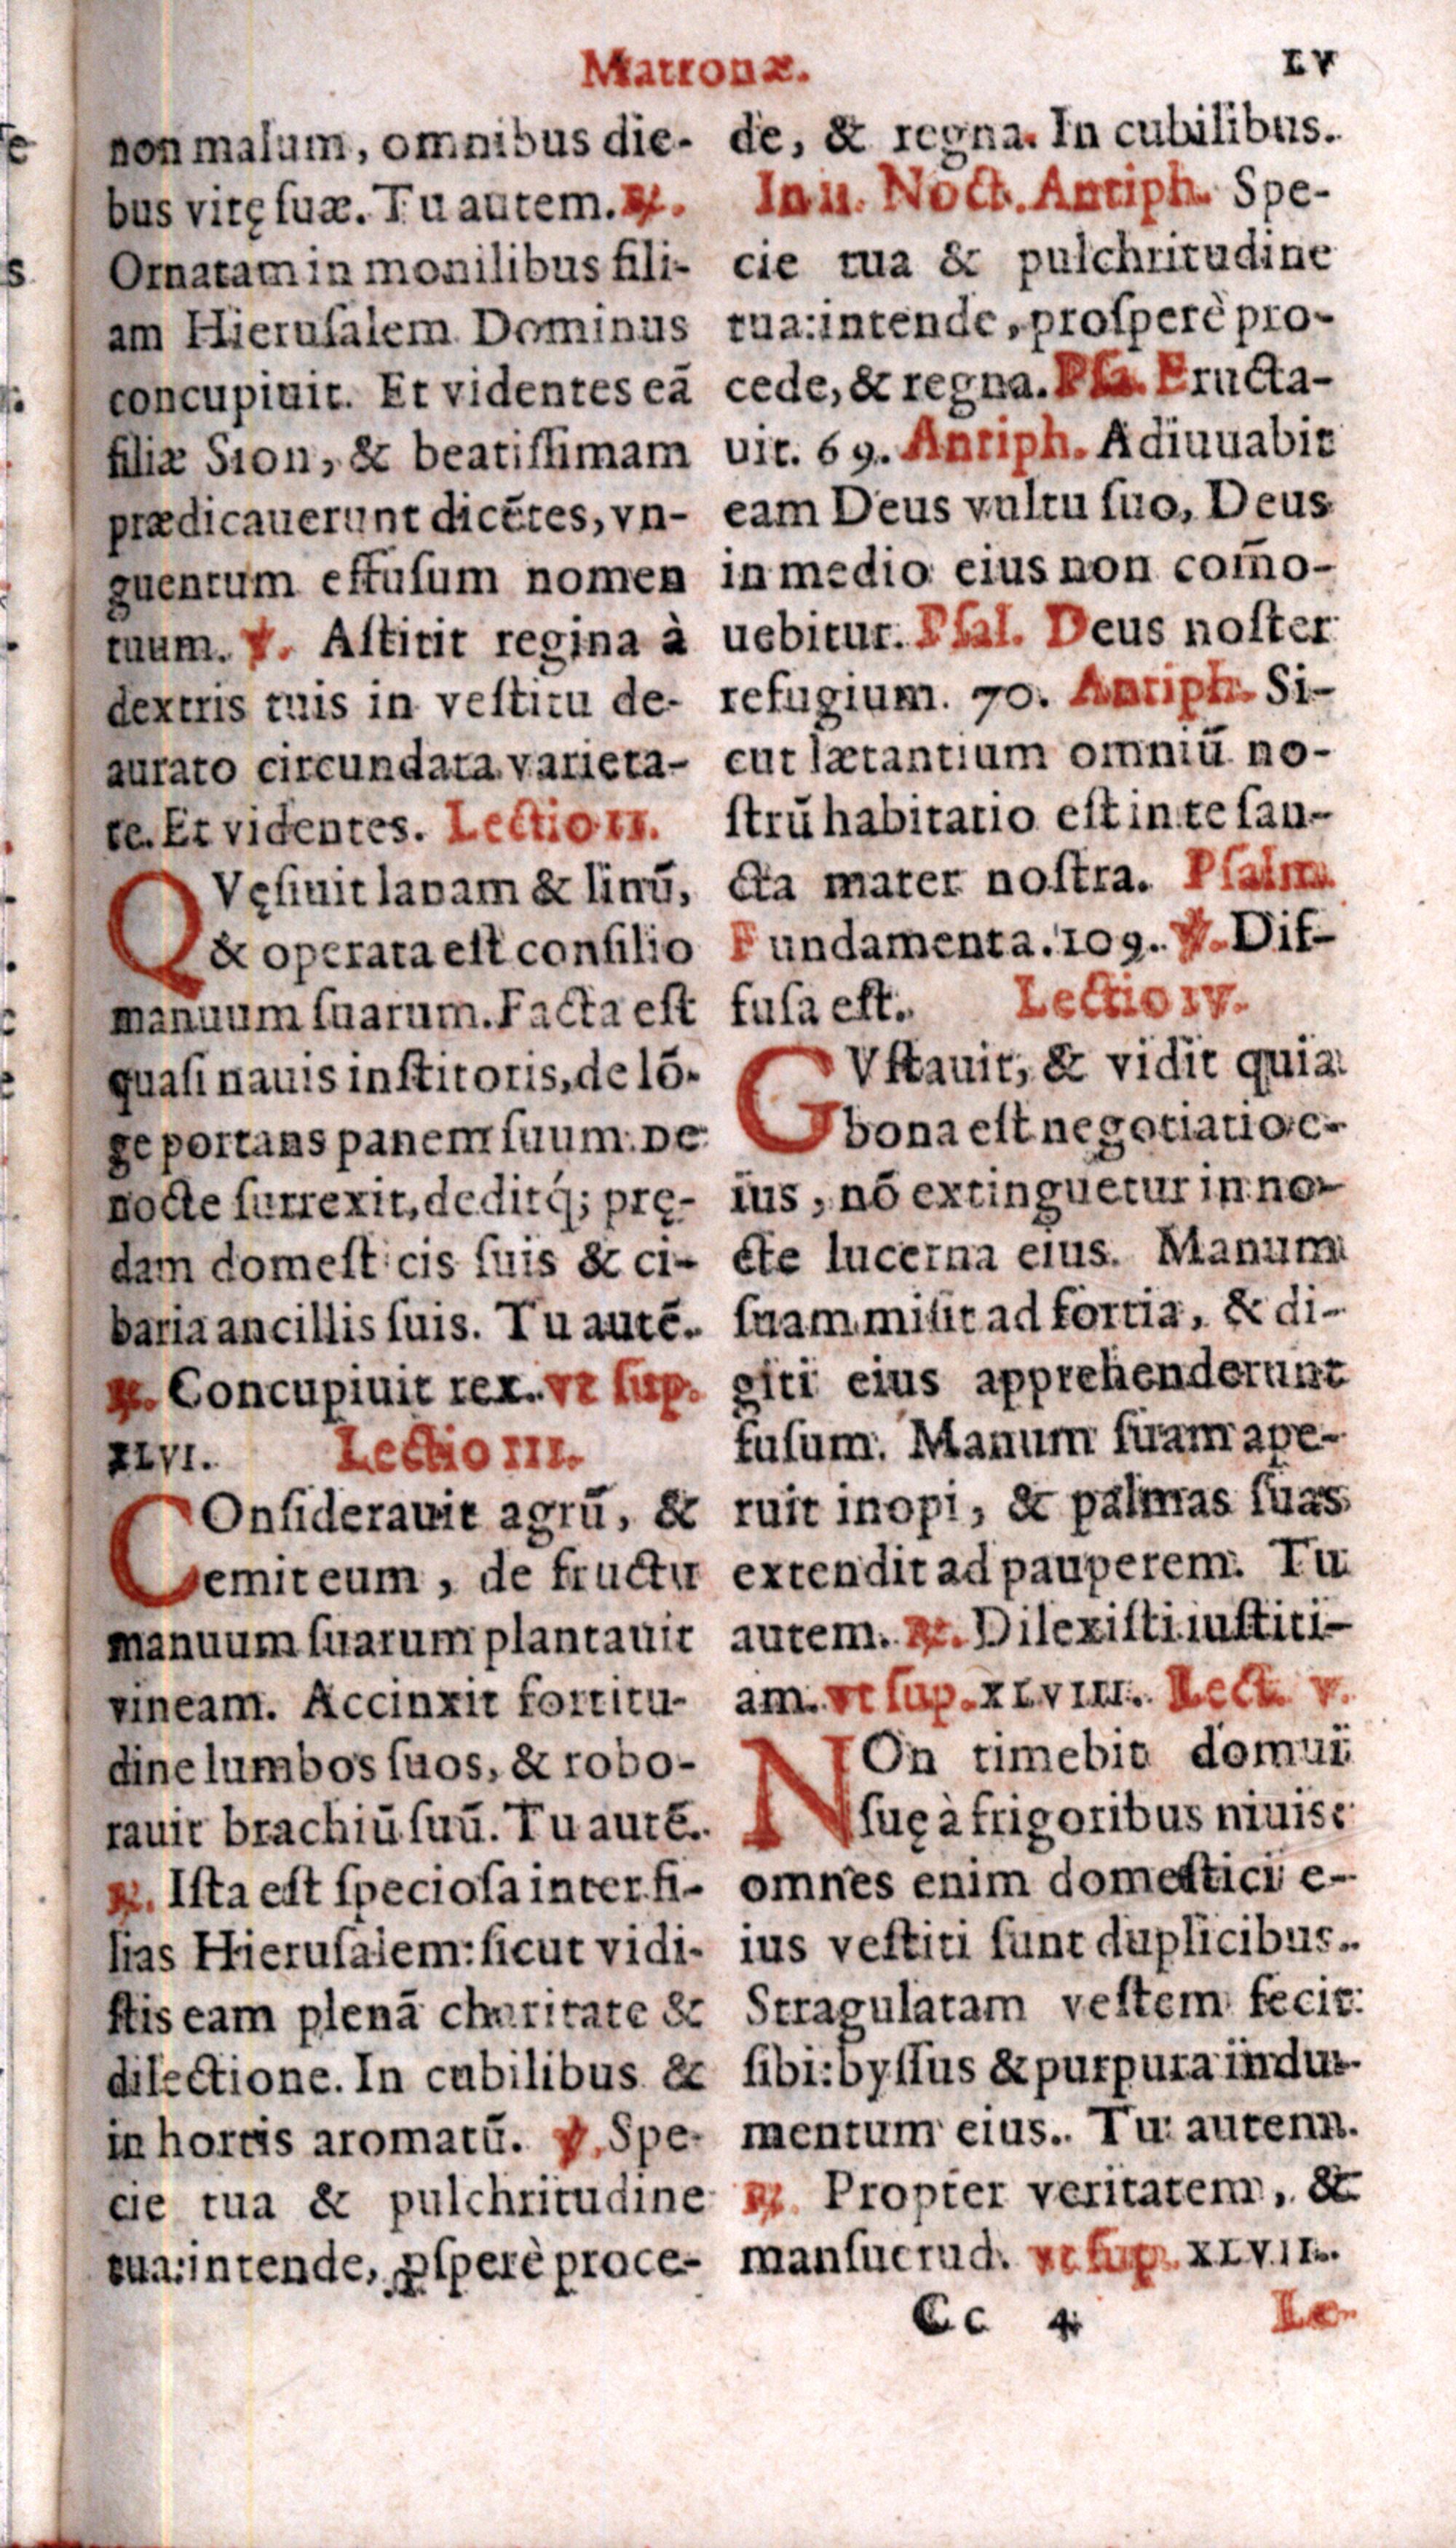 Matronæ.
LV
non malum, omnibus die-
bus vitę ſuæ. Tu autem. ℟.
Ornatam in monilibus fili-
am Hieruſalem Dominus
concupiuit. Et videntes eā
filiæ Sion, & beatiſſimam
prædicauerunt dicētes, vn-
guentum effuſum nomen
tuum. ℣. Aſtitit regina à
dextris tuis in veſtitu de-
aurato circundata varieta-
te. Et videntes. Lectio II.
QVęſiuit lanam & linū,
& operata eſt conſilio
manuum ſuarum. Facta eſt
quaſi nauis inſtitoris, de lō-
ge portans panem ſuum. De
nocte ſurrexit, deditq́; prę-
dam domeſticis ſuis & ci-
baria ancillis ſuis. Tu autē.
℟. Concupiuit rex. vt ſup.
XLVI. Lectio III.
COnſiderauit agrū, &
emit eum, de fructu
manuum ſuarum plantauit
vineam. Accinxit fortitu-
dine lumbos ſuos, & robo-
rauit brachiū ſuū. Tu autē.
℟. Iſta eſt ſpecioſa inter fi-
lias Hieruſalem: ſicut vidi-
ſtis eam plenā charitate &
dilectione. In cubilibus &
in hortis aromatū. ℣. Spe-
cie tua & pulchritudine
tua: intende, ꝓſperè proce-
de, & regna. In cubilibus.
In II. Noct. Antiph. Spe-
cie tua & pulchritudine
tua: intende, proſperè pro-
cede, & regna. Pſa. Eructa-
uit. 69. Antiph. Adiuuabit
eam Deus vultu ſuo, Deus
in medio eius non com̄o-
uebitur. Pſal. Deus noſter
refugium. 70. Antiph. Si-
cut lætantium omniū no-
ſtrū habitatio eſt in te ſan-
cta mater noſtra. Pſalm.
Fundamenta. 109. ℣. Dif-
fuſa eſt. Lectio IV.
GVſtauit, & vidit quia
bona eſt negotiatio e-
ius, nō extinguetur in no-
cte lucerna eius. Manum
ſuam miſit ad fortia, & di-
giti eius apprehenderunt
fuſum. Manum ſuam ape-
ruit inopi, & palmas ſuas
extendit ad pauperem. Tu
autem. ℟. Dilexiſti iuſtiti-
am. vt ſup. XLVIII. Lect. V.
NOn timebit domui
ſuę à frigoribus niuis:
omnes enim domeſtici e-
ius veſtiti ſunt duplicibus.
Stragulatam veſtem fecit
ſibi: byſſus & purpura indu-
mentum eius. Tu autem.
℟. Propter veritatem, &
manſuetud. vt ſup. XLVII.
Cc 4
Le-